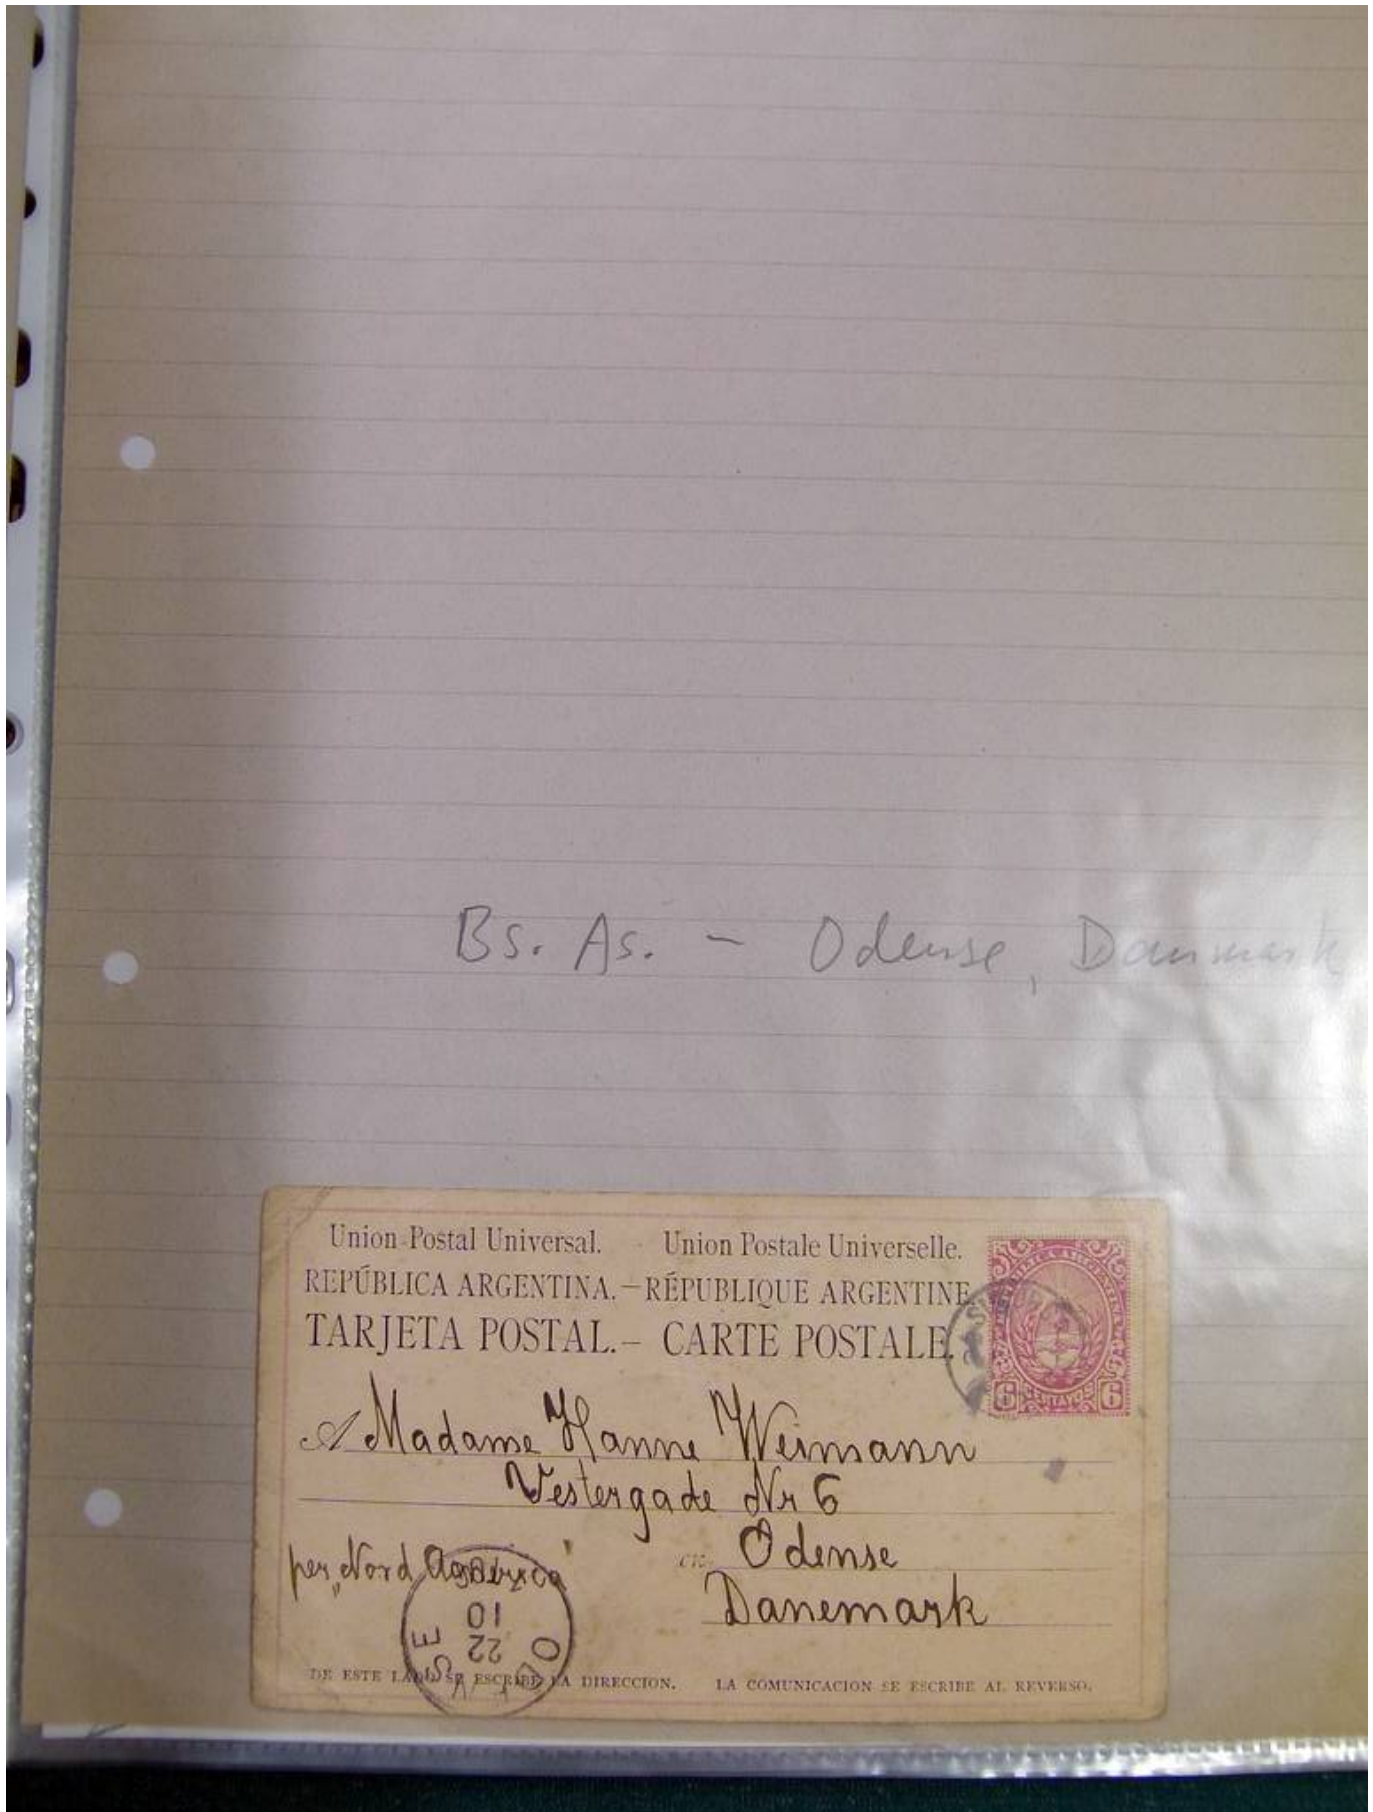 Bs. As. - Odense, Danmark
Union Postal Universal. Union Postale Universelle.
REPÚBLICA ARGENTINA. — RÉPUBLIQUE ARGENTINE
TARJETA POSTAL. — CARTE POSTALE.
6 CENTAVOS 6
A Madame Hanne Weimann
Vestergade Nr 6
Odense
per "Nord America
Danemark
ODENSE
22
10
DE ESTE LADO SE ESCRIBE LA DIRECCION. LA COMUNICACION SE ESCRIBE AL REVERSO.